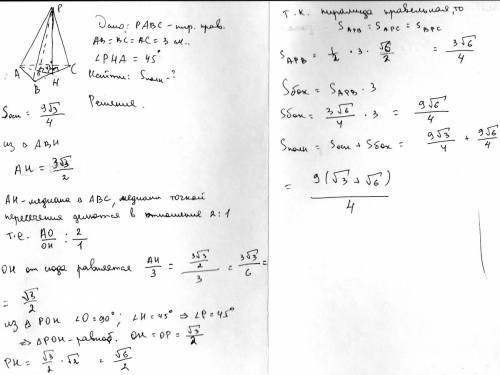 P
A
B
C
H
Дано: PABC - пир. прав.
AB = BC = AC = 3 см.
∠PHA = 45°
Найти: Sполн - ?
Решение.
Sосн = 9√3/4
из △ ABH
AH = 3√3/2
AH - медиана в ABC, медианы точкой
пересечения делятся в отношение 2:1
т.е. AO/OH : 2/1
OH от сюда равняется AH/3 = (3√3/2)/3 = 3√3/6 =
= √3/2
из △ POH ∠O = 90°; ∠H = 45° ⇒ ∠P = 45°
⇒ △POH - равноб. OH = OP = √3/2
PH = √3/2 · √2 = √6/2
т.к. пирамида правельная, то
SAPB = SAPC = SBPC
SAPB = 1/2 · 3 · √6/2 = 3√6/4
Sбок = SAPB · 3
Sбок = 3√6/4 · 3 = 9√6/4
Sполн = Sосн + Sбок = 9√3/4 + 9√6/4
= 9(√3 + √6)/4